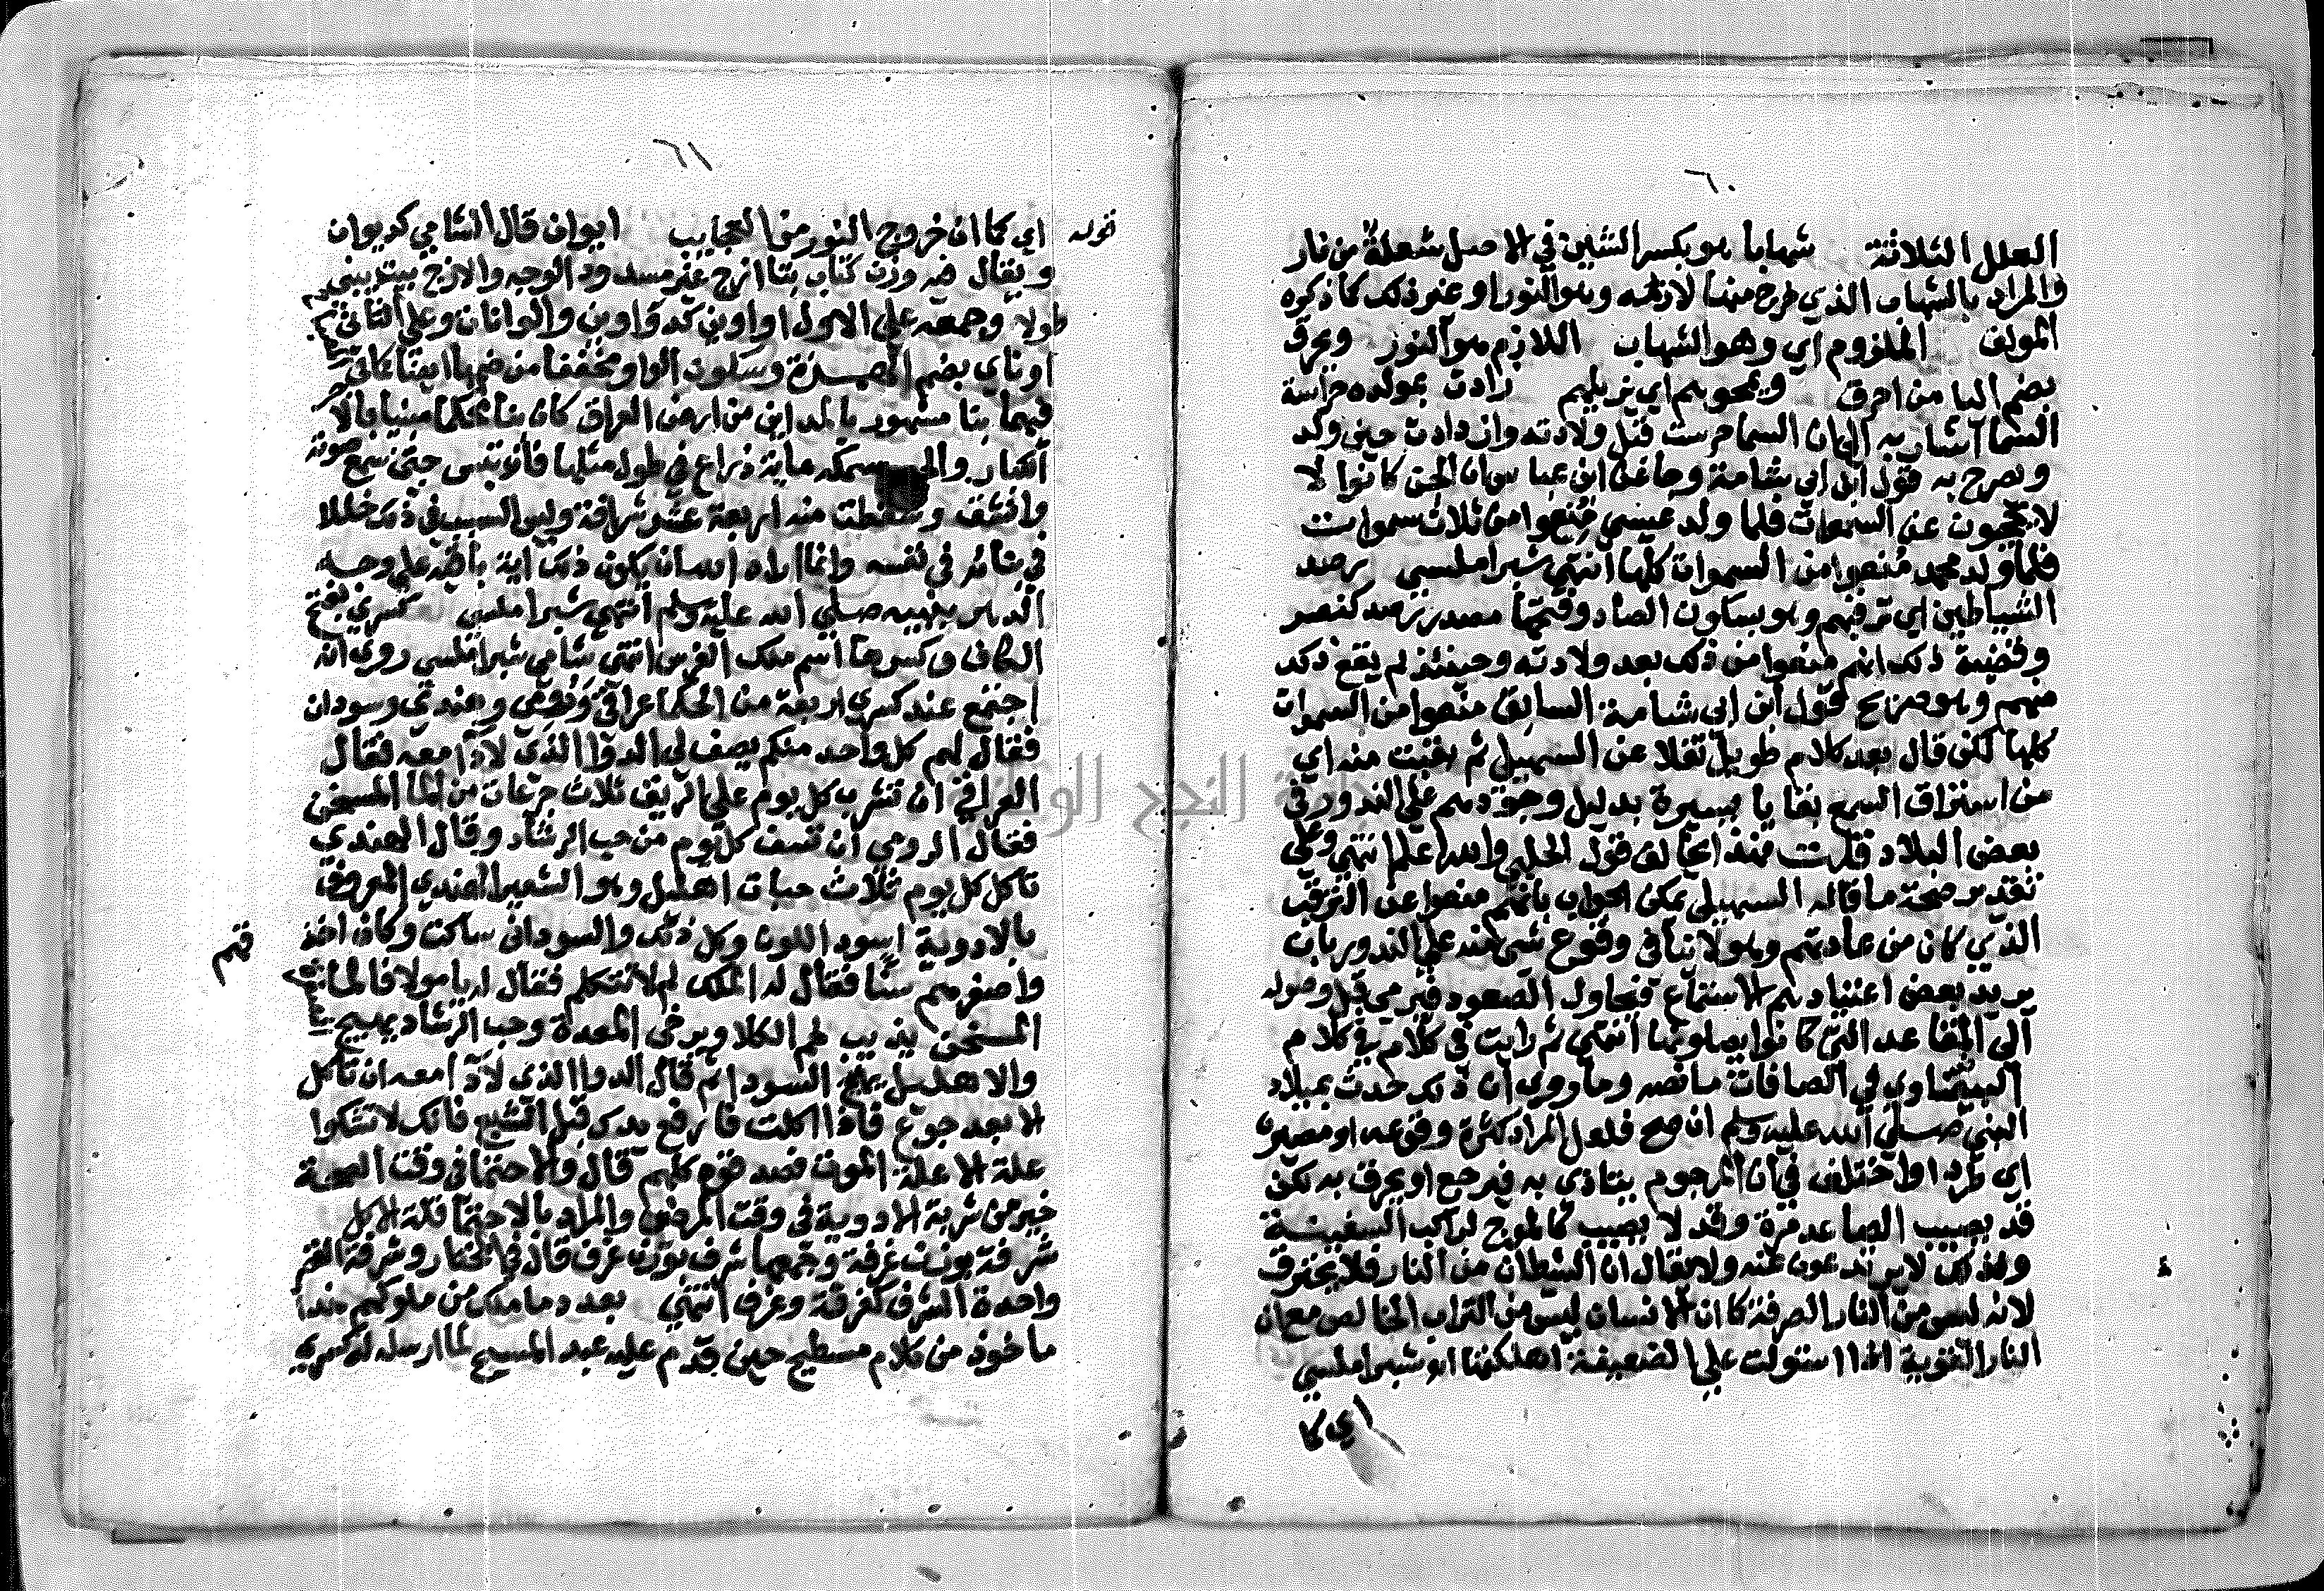 ٦٠
العلل الثلاثة شهابا هو بكسر الشين في الاصل شعلة من نار
والمراد بالشهاب الذي خرج منها لازمه وهو النور او غير ذلك كما ذكره
المولف الملزوم اي وهو الشهاب اللازم هو النور ويحرق
بضم اليا من احرق ويمحوهم اي يزيلهم زادت بمولده حراسة
السما اشار به الى ان السما حرست قبل ولادته وازدادت حين ولد
ويصرح به قول ابن ابي شامة وجا عن ابن عباس ان الجن كانوا لا
لا يحجبون عن السموات فلما ولد عيسى منعوا من ثلاث سموات
فلما ولد محمد منعوا من السموات كلها انتهي شبراملسي رصد
الشياطين اي ترقبهم وهو بسكون الصاد وفتحها مصدر رصد كنصر
وقضية ذلك انهم منعوا من ذلك بعد ولادته وحينئذ لم يقع ذلك
منهم وهو صريح قول ابن ابي شامة السابق منعوا من السموات
كلها لكن قال بعد كلام طويل نقلا عن السهيلي ثم بقيت منه اي
من استراق السمع بقايا يسيرة بدليل وجودهم على الندور في
بعض البلاد قلت هذا يخالف قول الحلبي والله اعلم انتهي وعلى
تقدير صحة ما قاله السهيلي يمكن الجواب بانهم منعوا عن الترقب
الذي كان من عادتهم وهو لا ينافي وقوع شي منه على الندور بان
يريد بعض اعتيادهم الاستماع فيحاول الصعود فيرمى قبل وصوله
الى المقاعد التي كانوا يصلونها انتهي ثم رايت في كلام في كلام
البيضاوي في الصافات ما نصه وما روى ان ذلك حدث بميلاد
النبي صلى الله عليه وسلم ان صح فلعل المراد كثرة وقوعه او مصيره
اي طردا واختلف في ان المرجوم يتاذى به فيرجع او يحرق به لكن
قد يصيب الصاعد مرة وقد لا يصيب كالموج لراكب السفينة
ولذلك لا يرتدعون عنه ولا يقال ان الشيطان من النار فلا يحترق
لانه ليس من النار الصرفة كما ان الانسان ليس من التراب الخالص مع ان
النار القوية اذا استولت على الضعيفة اهلكتها اهـ شبراملسي
اي كما
٦١
قوله اي كما ان خروج النور من العجايب ايوان قال الشامي كديوان
ويقال فيه وزن كتاب بنا ازج غير مسدود الوجه والازج بيت يبنى
طولا وجمعه على الاول اواوين كدواوين وايوانات وعلى الثاني
اوناي بضم الهمزة وسكون الواو مخففا من ضمها
فيهما بنا مشهور بالمدائن من ارض العراق كان بنا محكما مبنيا بالا
الكبار والجص سمكه ماية ذراع في طول مثلها فارتجس حتى سمع صوته
وانشق وسقطت منه اربعة عشر شرافة وليس السبب في ذلك خللا
في بنائه في نفسه وانما اراد الله ان يكون ذلك اية باقية على وجه
الدهر بنبيه صلى الله عليه وسلم انتهي شبراملسي كسري بفتح
الكاف وكسرها اسم ملك الفرس انتهي شامي شبراملسي روي انه
اجتمع عند كسرى اربعة من الحكما عراقي ورومي وهندي وسوداني
فقال لهم كل واحد منكم يصف لي الدوا الذي لا دا معه فقال
العراقي ان تشرب كل يوم على الريق ثلاث جرعات من الما المسخن
فقال الرومي ان تسف كل يوم من حب الرشاد وقال الهندي
تاكل كل يوم ثلاث حبات اهليلج وهو الشعير الهندي المعروف
بالادوية اسود اللون وكل ذلك والسوداني ساكت وكان احذ
قهم
واصغرهم سنا فقال له الملك لم لا تتكلم فقال له يا مولا فالما
المسخن يذيب لهم الكلا ويرخى المعدة وحب الرشاد يهيج
والاهليلج يهيج السودا ثم قال الدوا الذي لا دا معه ان تاكل
الا بعد جوع فاذا اكلت فارفع يدك قبل الشبع فانك لا تشكوا
علة الا علة الموت فصدقوه كلهم قال والاحتما في وقت الصحة
خير من شربة الادوية في وقت المرض والمراد بالاحتما قلة الاكل
شرفة بوزن غرفة وجمعها شرف بوزن غرف قال في المختار وشرفة القصر
واحدة الشرف كغرفة وغرف انتهي بعد دما ملك من ملوكهم هذا
ماخوذ من كلام سطيح حين قدم عليه عبد المسيح لما ارسله له كسري